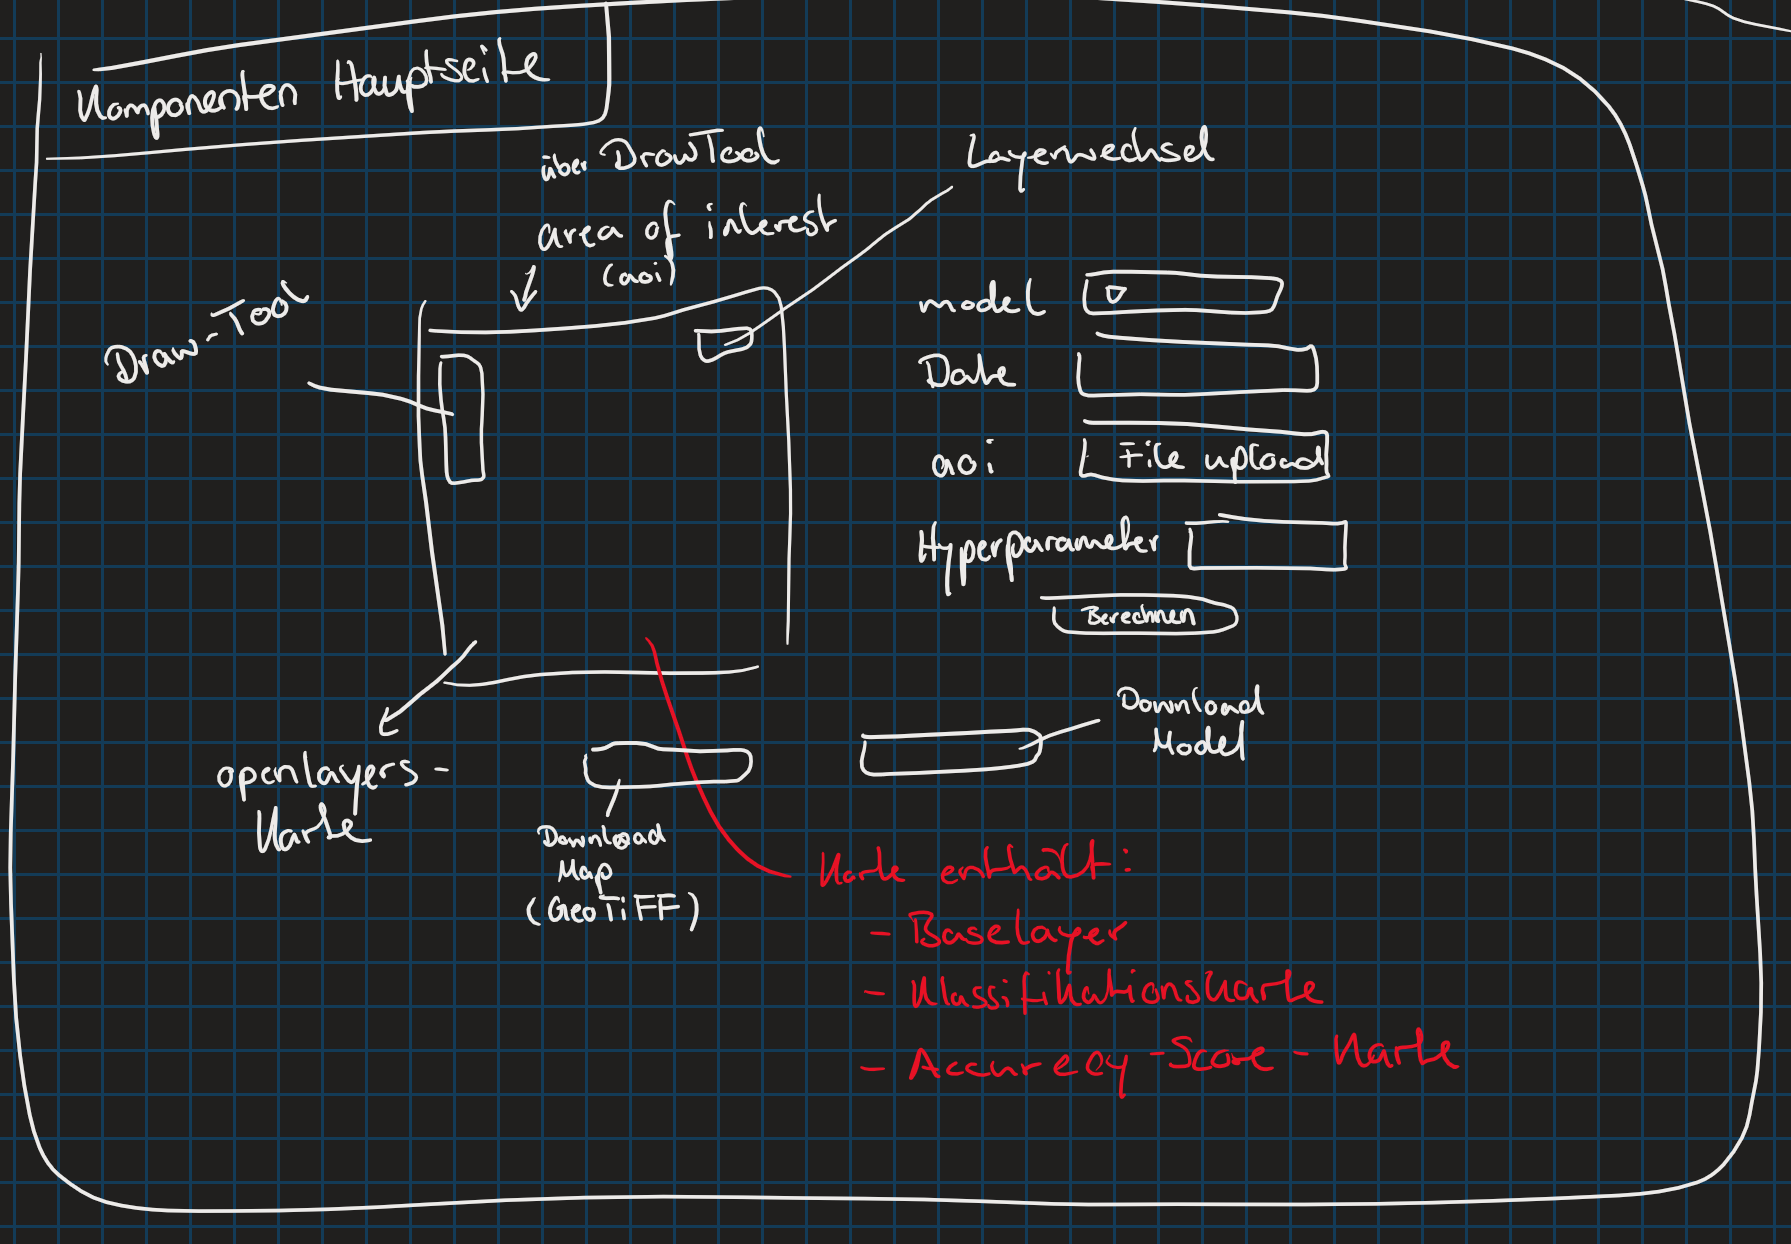 Komponenten Hauptseite
über DrawTool
area of interest
(aoi)
Layerwechsel
Draw-Tool
model
Date
aoi File upload
Hyperparameter
Berechnen
Download
Model
openlayers-
Karte
Download
Map
(GeoTiFF)
Karte enthält:
- Baselayer
- Klassifikationskarte
- Accurecy-Score-Karte